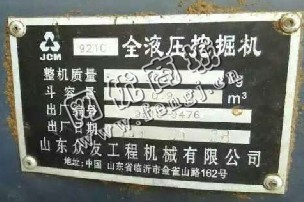 JCM 921C 全液压挖掘机
整机质量
斗容量 m³
出厂编号
出厂日期
山东众友工程机械有限公司
地址:中国 山东省临沂市金雀山路162号